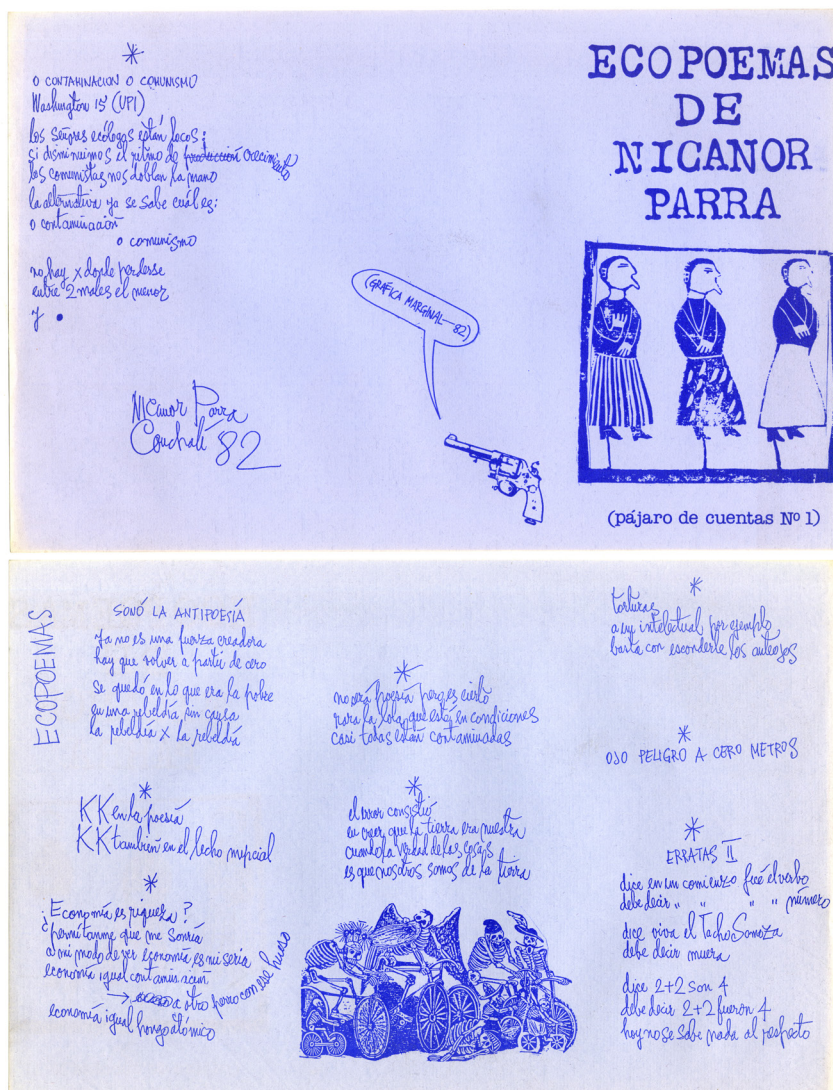 *
O CONTAMINACION O COMUNISMO
Washington 15 (UPI)
los Señores ecólogos están locos:
si disminuimos el ritmo de producción crecimiento
los comunistas nos doblan la mano
la alternativa ya se sabe cuál es:
o contaminación
o comunismo
no hay x donde perderse
entre 2 males el menor
y •
Nicanor Parra
Conchalí 82
(GRAFICA MARGINAL—82)
ECOPOEMAS
DE
NICANOR
PARRA
(pájaro de cuentas Nº 1)
ECOPOEMAS
SONÓ LA ANTIPOESÍA
Ya no es una fuerza creadora
hay que volver a partir de cero
Se quedó en lo que era la pobre
en una rebeldía sin causa
la rebeldía x la rebeldía
*
KK en la poesía
KK también en el lecho nupcial
*
¿Economía es riqueza?
permítanme que me sonría
a mi modo de ver economía es miseria
economía igual contaminación
→ a otro perro con ese hueso
economía igual hongo atómico
*
no será poesía pero es cierto
rara la lola que esté en condiciones
casi todas están contaminadas
*
el error consistió
en creer que la tierra era nuestra
cuando la verdad de las cosas
es que nosotros somos de la tierra
*
torturas
a un intelectual por ejemplo
basta con esconderle los anteojos
*
OJO PELIGRO A CERO METROS
*
ERRATAS II
dice en un comienzo fué el verbo
debe decir " " " " número
dice viva el Tacho Somoza
debe decir muera
dice 2+2 son 4
debe decir 2+2 fueron 4
hoy no se sabe nada al respecto